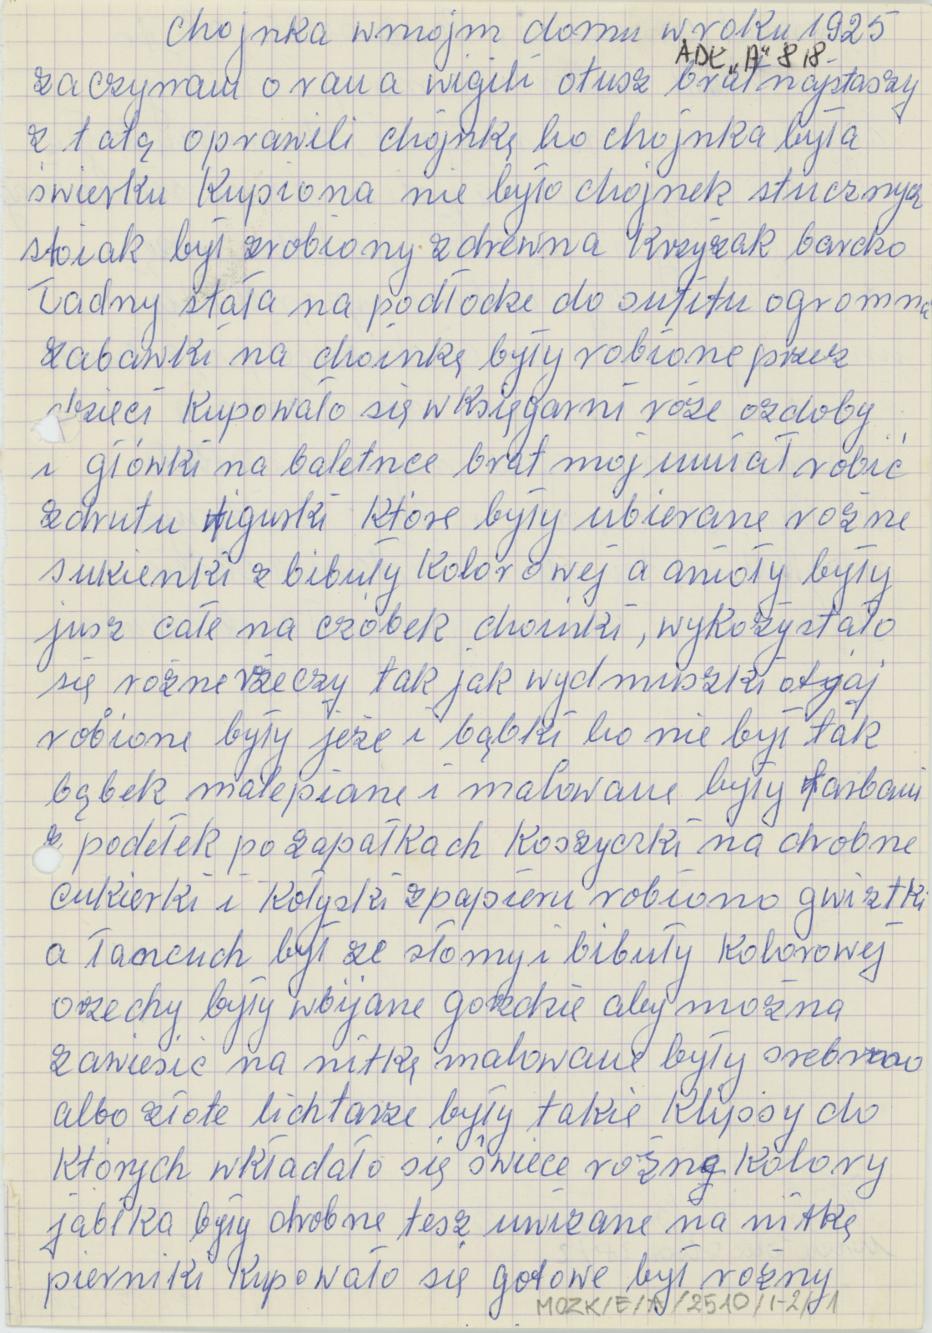 chojnka wmojm domu w roku 1925
ADL „A" 818
zaczynam o rana wigili otusz brat najstaszy
z tatą oprawili chojnkę bo chojnka była
świerku Kupiona nie było chojnek stucznych
stoiak był zrobiony zdrewna Krzyżak barcko
Ładny stała na podłocke do sufitu ogromna
zabawki na choinkę były robione przez
dzieci Kupowało się w Księgarni róże ozdoby
i główki na baletnce brat mój umiał robić
zdrutu figurki Które były ubierane rożne
sukienki z bibuły Kolorowej a anioły były
jusz całe na czóbek choinki, wykożystało
się rożne rzeczy tak jak wydmuszki otjaj
robione były jeże i bąbki bo nie był tak
bąbek malepiane i malowane były farbami
z podełek po zapałkach Koszyczki na drobne
cukierki i Kołyski zpapieru robiono gwiztki
a łancuch był ze słomy i bibuły Kolorowej
orzechy były wbijane gozdkie aby można
zawiesic na nitkę malowane były srebrno
albo złote lichtarze były takie Klipsy do
Których wkładało się świece rożne Kolory
jabłka były drobne tesz uwizane na nitkę
pierniki Kupowało się gotowe był rożny
MOZK/E/A/2510/1-2/1